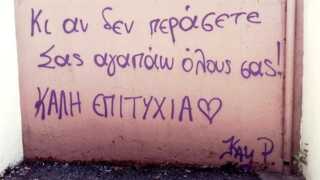 Κι αν δεν περάσετε
Σας αγαπάω όλους σας!
ΚΑΛΗ ΕΠΙΤΥΧΙΑ♡
Kay P.